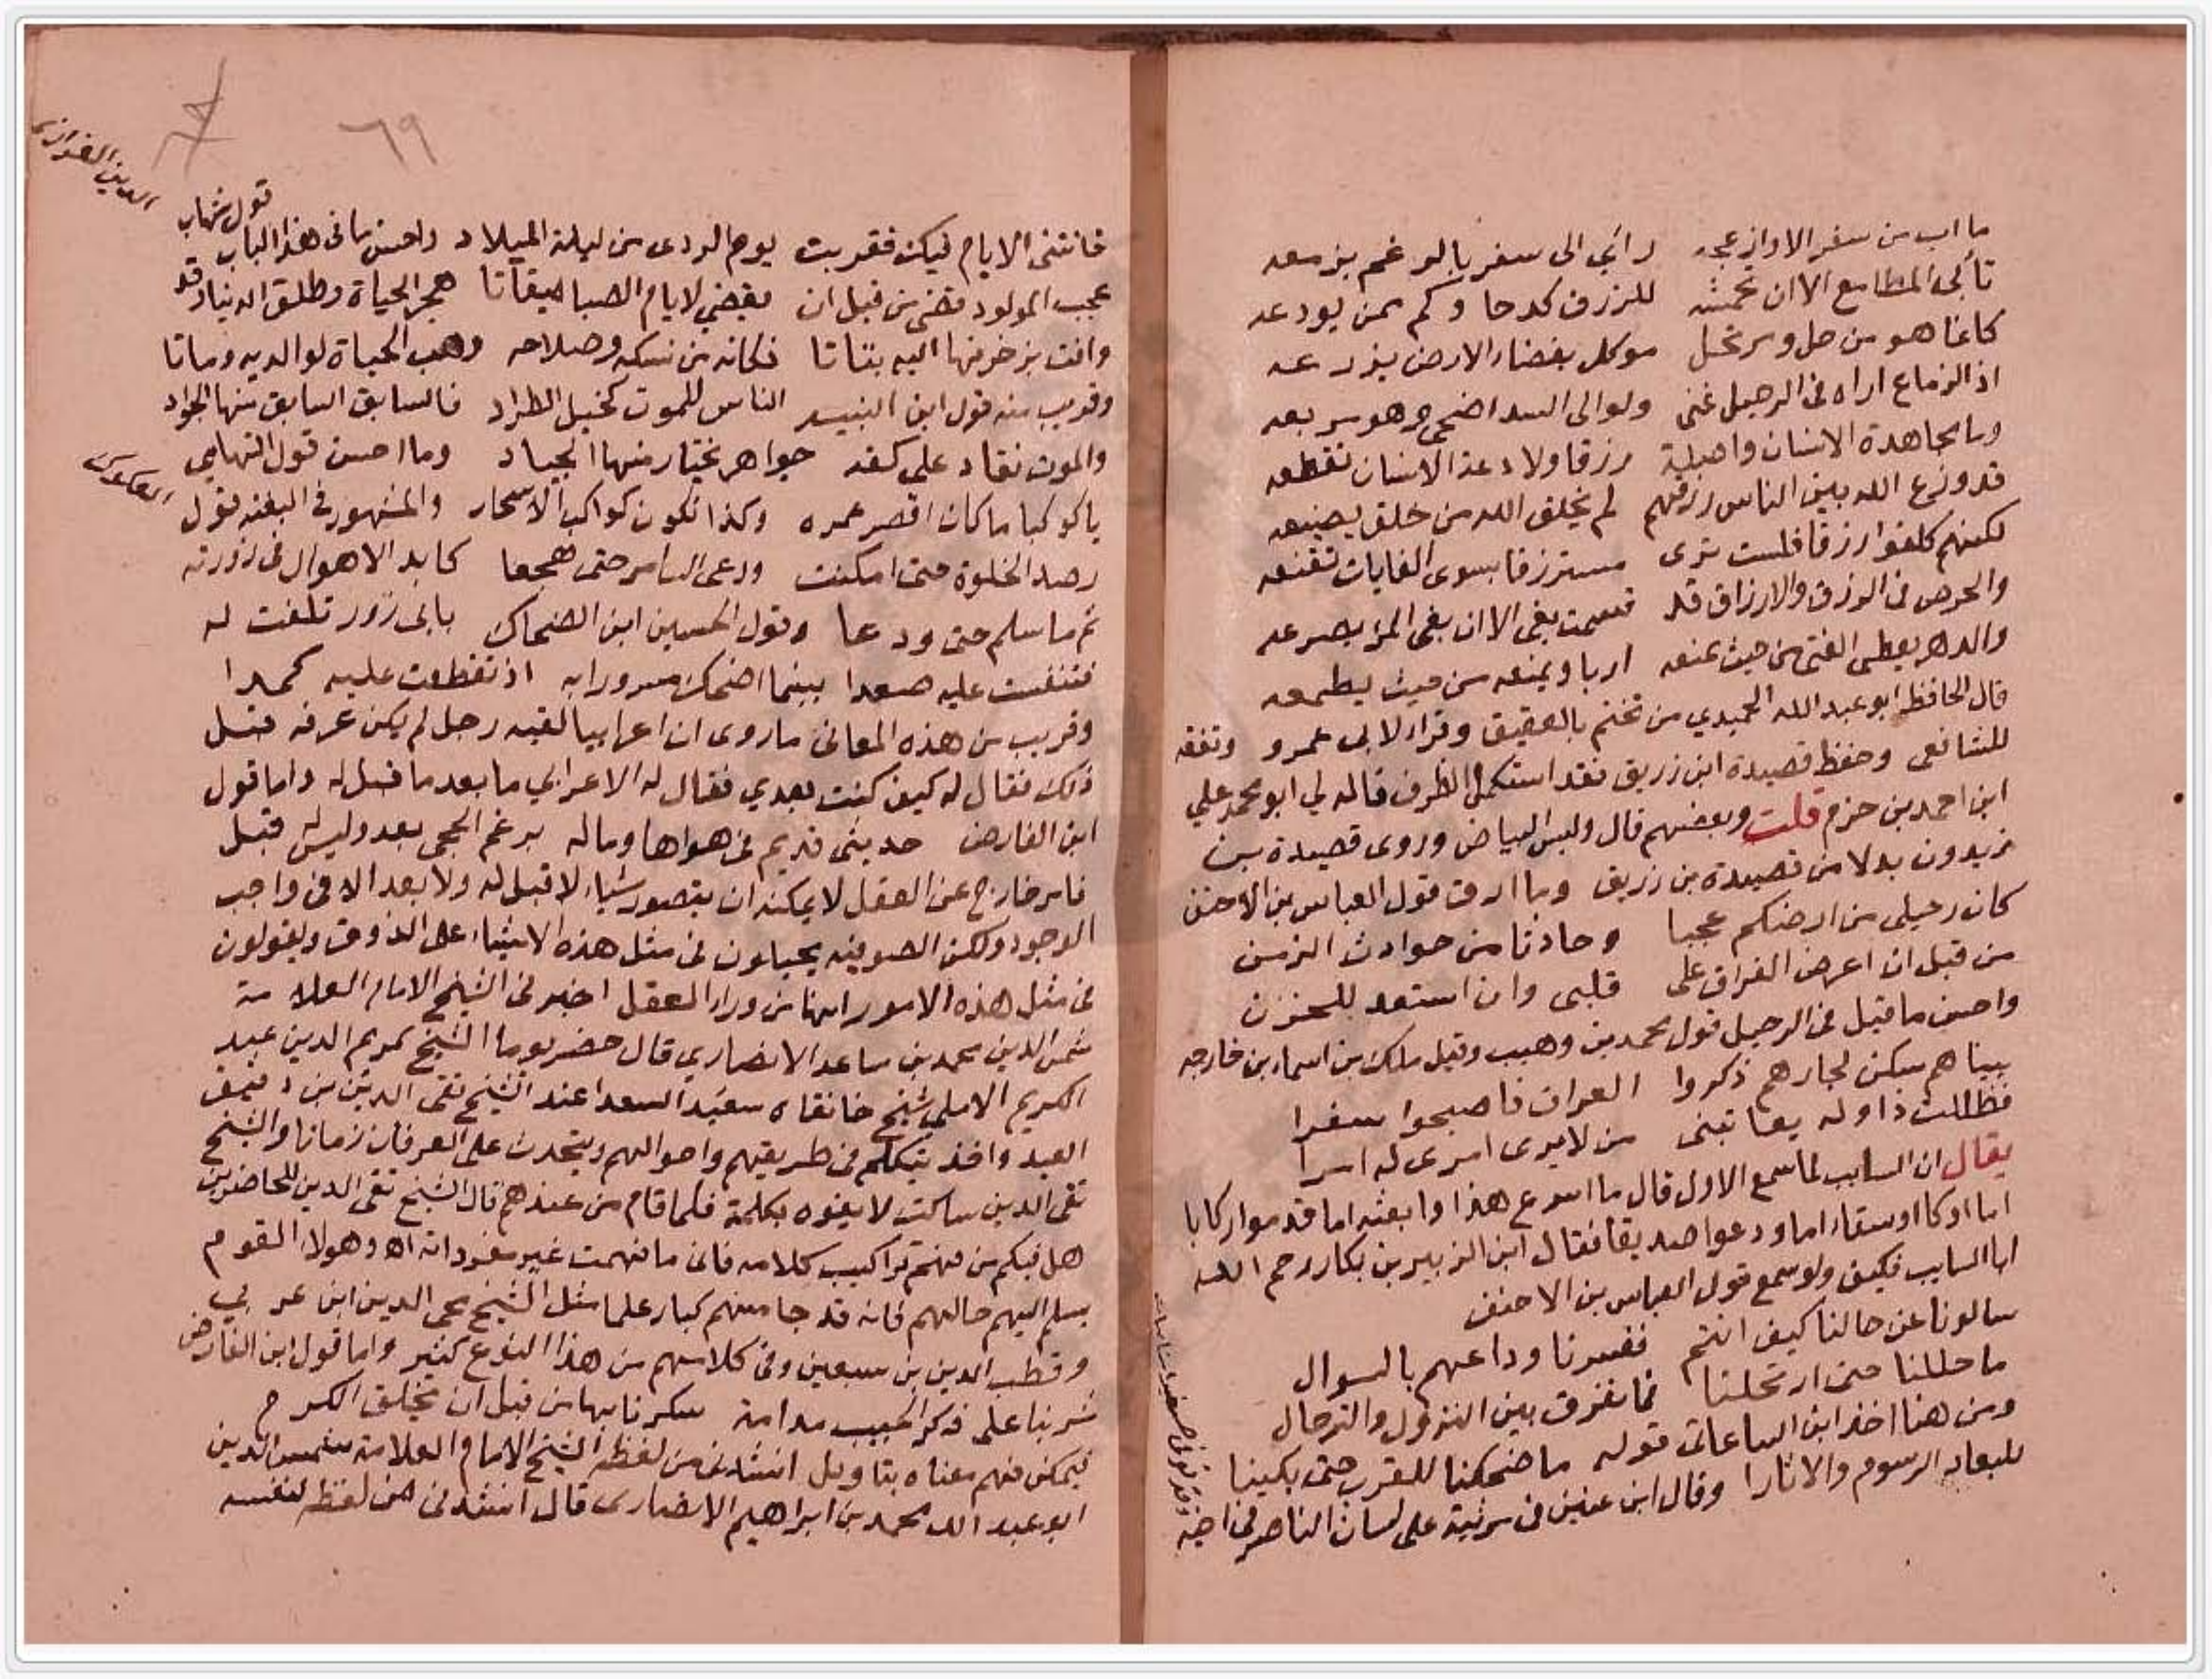 ما اب من سفر الا وازعجه راي الى سفر بالرغم يزمعه
تأبى المطامع الا ان تجشمه للرزق كدحا وكم ممن يودعه
كانما هو من حل ومرتحل موكل بفضاء الارض يذرعه
اذا الزماع اراه في الرحيل غنى ولو الى السد اضحى وهو يربعه
وما مجاهدة الانسان واصلة رزقا ولا دعة الانسان تقطعه
قد وزع الله بين الناس رزقهم لم يخلق الله من خلق يضيعه
لكنهم كلفوا رزقا فلست ترى مسترزقا وسوى الغايات تقنعه
والحرص في الرزق والارزاق قد قسمت بغي الا ان بغي المرء يصرعه
والدهر يعطي الفتى من حيث يمنعه اربا ويمنعه من حيث يطمعه
قال الحافظ ابو عبد الله الحميدي من تختم بالعقيق وقرا لابي عمرو وتفقه
للشافعي وحفظ قصيدة ابن زريق فقد استكمل الظرف قاله لي ابو محمد علي
ابن احمد بن حزم قلت وبعضهم قال ولبس البياض وروى قصيدة بن
زيدون بدلا من قصيدة بن زريق وما ارق قول العباس بن الاحنف
كان رحيلي من ارضكم عجبا وحادثا من حوادث الزمن
من قبل ان اعرض الفراق على قلبي وان استعد للحزن
واحسن ما قيل في الرحيل قول محمد بن وهيب وقيل ملك بن اسما بن خارجه
بينا هم سكن لجارهم ذكروا الفراق فاصبحوا سفرا
فظللت ذا وله يعاتبني من لا يرى امري له امرا
يقال ان السايب لما سمع الاول قال ما اسرع هذا وابعثه اما قدموا ركابا
اما اوكا اوسقاء اما ودعوا صديقا فقال ابن الزبير بن بكار رحم الله
ابا السايب فكيف ولو سمع قول العباس بن الاحنف
سالونا عن حالنا كيف انتم فقرنا وداعهم بالسوال
ما حللنا حتى ارتحلنا فما نفرق بين النزول والترحال
ومن هنا اخذ ابن الساعاتي قوله ما ضحكنا للقرب حتى بكينا
للبعاد الرسوم والاثارا وقال ابن عنين في مرثية على لسان الناصر في اخيه
٦٩
فانتني الايام فيك فقربت يوم الردى من ليلة الميلاد واحسن ما في هذا الباب قول شهاب
الدين
عجب المولود قضى من قبل ان يقضي لايام الصبا ميقاتا هجر الحياة وطلق الدنيا وقد
وافت بزخرفها اليه بتاتا فكانه من نسكه وصلاحه وهب الحياة لوالديه وماتا
وقريب منه قول ابن النبيه الناس للموت كخيل الطراد فالسابق السابق منها الجواد
والموت نقاد على كفه جواهر يختار منها الجياد وما احسن قول التهامي
يا كوكبا ما كان اقصر عمره وكذا تكون كواكب الاسحار والمشهور في البغته قول
العكوك
رصد الخلوة حتى امكنت ورعى السامر حتى هجعا كابد الاهوال في زورته
ثم ما سلم حتى ودعا وقول الحسين ابن الضحاك بابي زور تلفت له
فتنفست عليه صعدا بينما اضحك مسرورا به اذ تقطعت عليه كمدا
وقريب من هذه المعاني ما روى ان اعرابيا لقيه رجل لم يكن عرفه قبل
ذلك فقال له كيف كنت بعدي فقال له الاعرابي ما بعد ما قبل له واما قول
ابن الفارض حديثي قديم في هواها وما له برغم الحجى بعد وليس قبل
فامر خارج عن العقل لا يمكنه ان يتصور شياء لا قبل له ولا بعد الا في واجب
الوجود ولكن الصوفيه يحيلون في مثل هذه الاشياء على الذوق ويقولون
في مثل هذه الامور انها من وراء العقل اخبرني الشيخ الامام العلامة
شمس الدين محمد بن ساعد الانصاري قال حضر يوما الشيخ كريم الدين عبد
الكريم الاملي شيخ خانقاه سعيد السعدا عند الشيخ تقي الدين بن دقيق
العيد واخذ يتكلم في طريقهم واحوالهم ويتحدث على العرفان زمانا والشيخ
تقي الدين ساكت لا يفوه بكلمة فلما قام من عندهم قال الشيخ تقي الدين للحاضرين
هل فيكم من فهم تراكيب كلامه فاني ما فهمت غير مفرداته اه وهولاء القوم
يسلم اليهم حالهم فانه قد جا منهم كبار علما مثل الشيخ محي الدين ابن عربي
وقطب الدين بن سبعين وفي كلامهم من هذا النوع كثير واما قول ابن الفارض
شربنا على ذكر الحبيب مدامة سكرنا بها من قبل ان تخلق الكرم
فيمكن فهم معناه بتاويل انشدني من لفظه الشيخ الامام العلامة شمس الدين
ابو عبد الله محمد بن ابراهيم الانصاري قال انشدني من لفظه لنفسه